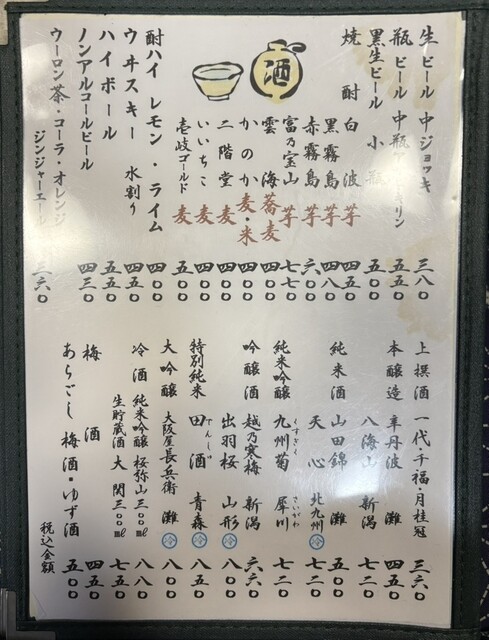 生ビール 中ジョッキ 三八〇
瓶ビール 中瓶 キリン 五五〇
黒生ビール 小瓶 五〇〇
焼酎
白波 芋 四五〇
黒霧島 芋 四八〇
赤霧島 芋 六〇〇
富乃宝山 芋 七七〇
雲海 蕎麦 四〇〇
かのか 麦・米 四〇〇
二階堂 麦 四〇〇
いいちこ 麦 四〇〇
壱岐ゴールド 麦 五〇〇
酒
酎ハイ レモン・ライム 四〇〇
ウヰスキー 水割り 四五〇
ハイボール 五五〇
ノンアルコールビール 四三〇
ウーロン茶・コーラ・オレンジ
ジンジャーエール 三六〇
上撰酒 一代千福 月桂冠 三六〇
本醸造 辛丹波 灘 四五〇
八海山 新潟 七二〇
純米酒 山田錦 灘 五〇〇
天心 北九州 冷 七二〇
純米吟醸 九州菊 くすぎく 犀川 さいがわ 七二〇
吟醸酒 越乃寒梅 新潟 六六〇
出羽桜 山形 冷 八〇〇
特別純米 田酒 でんしゅ 青森 冷 八五〇
大吟醸 大阪屋長兵衛 灘 冷 八〇〇
冷酒 純米吟醸 桜弥山 三〇〇ml 八八〇
生貯蔵酒 大関 三〇〇ml 七五〇
梅酒 四五〇
あらごし 梅酒・ゆず酒 五〇〇
税込金額